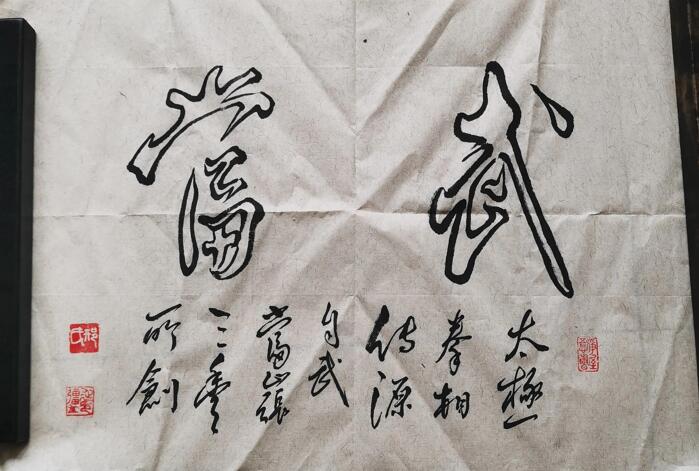 武當
太極
拳相
传源
自武
當山張
三豐
所創